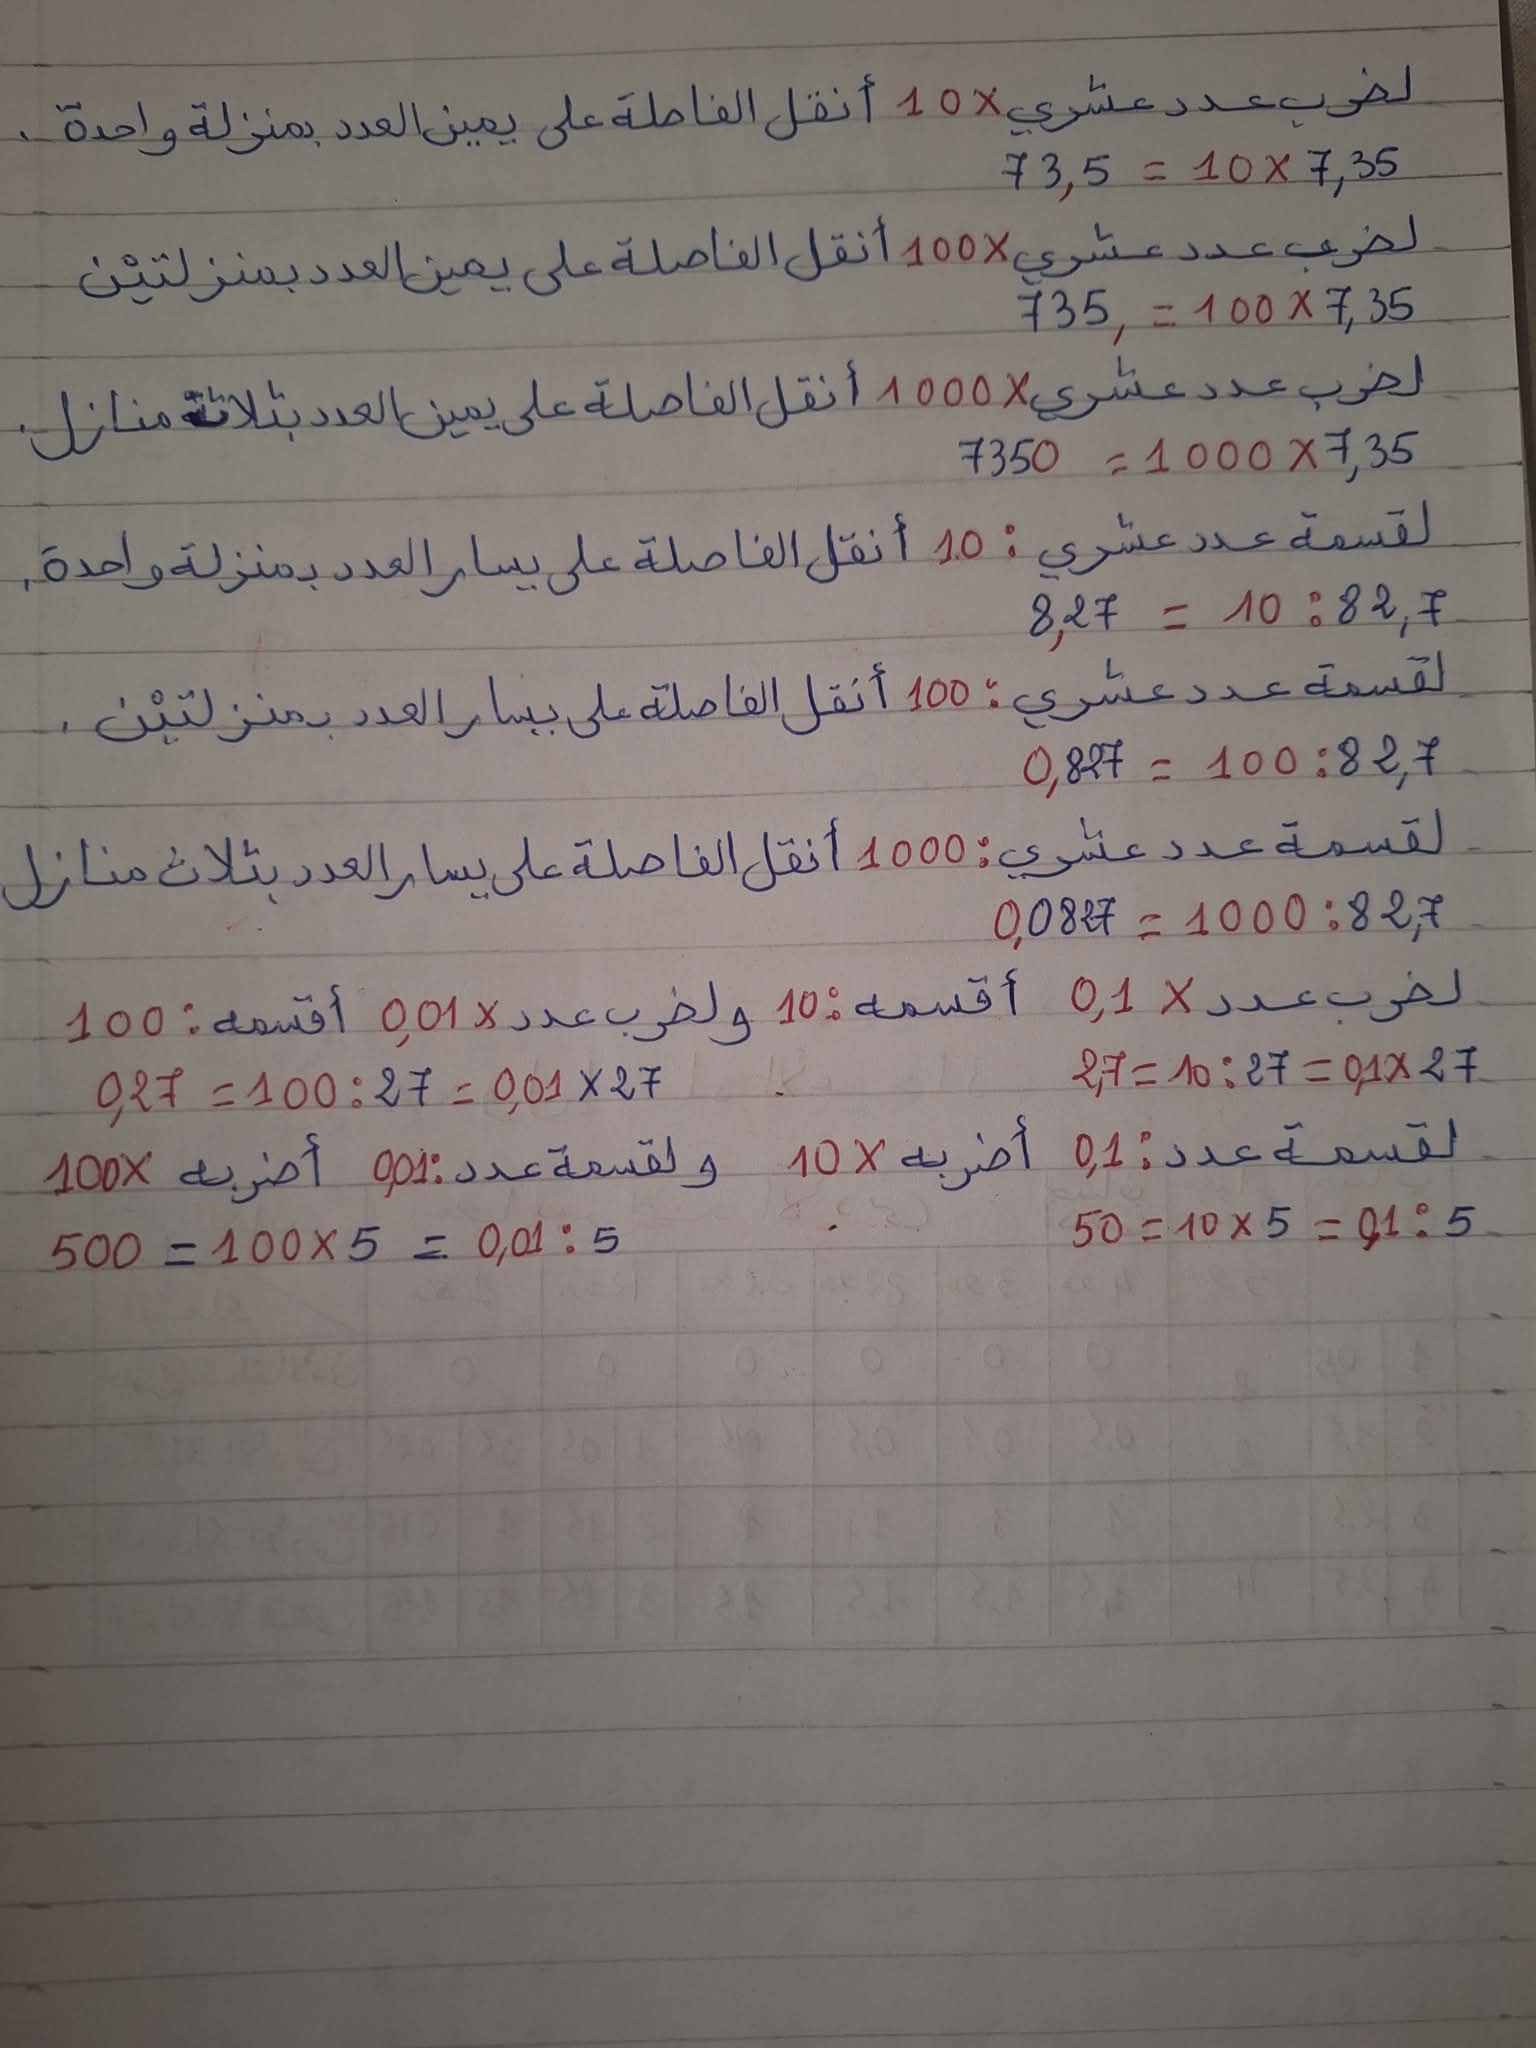 لضرب عدد عشري × 10 أنقل الفاصلة على يمين العدد بمنزلة واحدة.
7,35 × 10 = 73,5
لضرب عدد عشري × 100 أنقل الفاصلة على يمين العدد بمنزلتيْن
7,35 × 100 = 735,
لضرب عدد عشري × 1000 أنقل الفاصلة على يمين العدد بثلاثة منازل.
7,35 × 1000 = 7350
لقسمة عدد عشري : 10 أنقل الفاصلة على يسار العدد بمنزلة واحدة.
82,7 : 10 = 8,27
لقسمة عدد عشري : 100 أنقل الفاصلة على يسار العدد بمنزلتيْن.
82,7 : 100 = 0,827
لقسمة عدد عشري : 1000 أنقل الفاصلة على يسار العدد بثلاث منازل
82,7 : 1000 = 0,0827
لضرب عدد × 0,1 أقسمه : 10 ولضرب عدد × 0,01 أقسمه : 100
27 × 0,1 = 27 : 10 = 2,7 27 × 0,01 = 27 : 100 = 0,27
لقسمة عدد : 0,1 أضربه × 10 ولقسمة عدد : 0,01 أضربه × 100
5 : 0,1 = 5 × 10 = 50 5 : 0,01 = 5 × 100 = 500